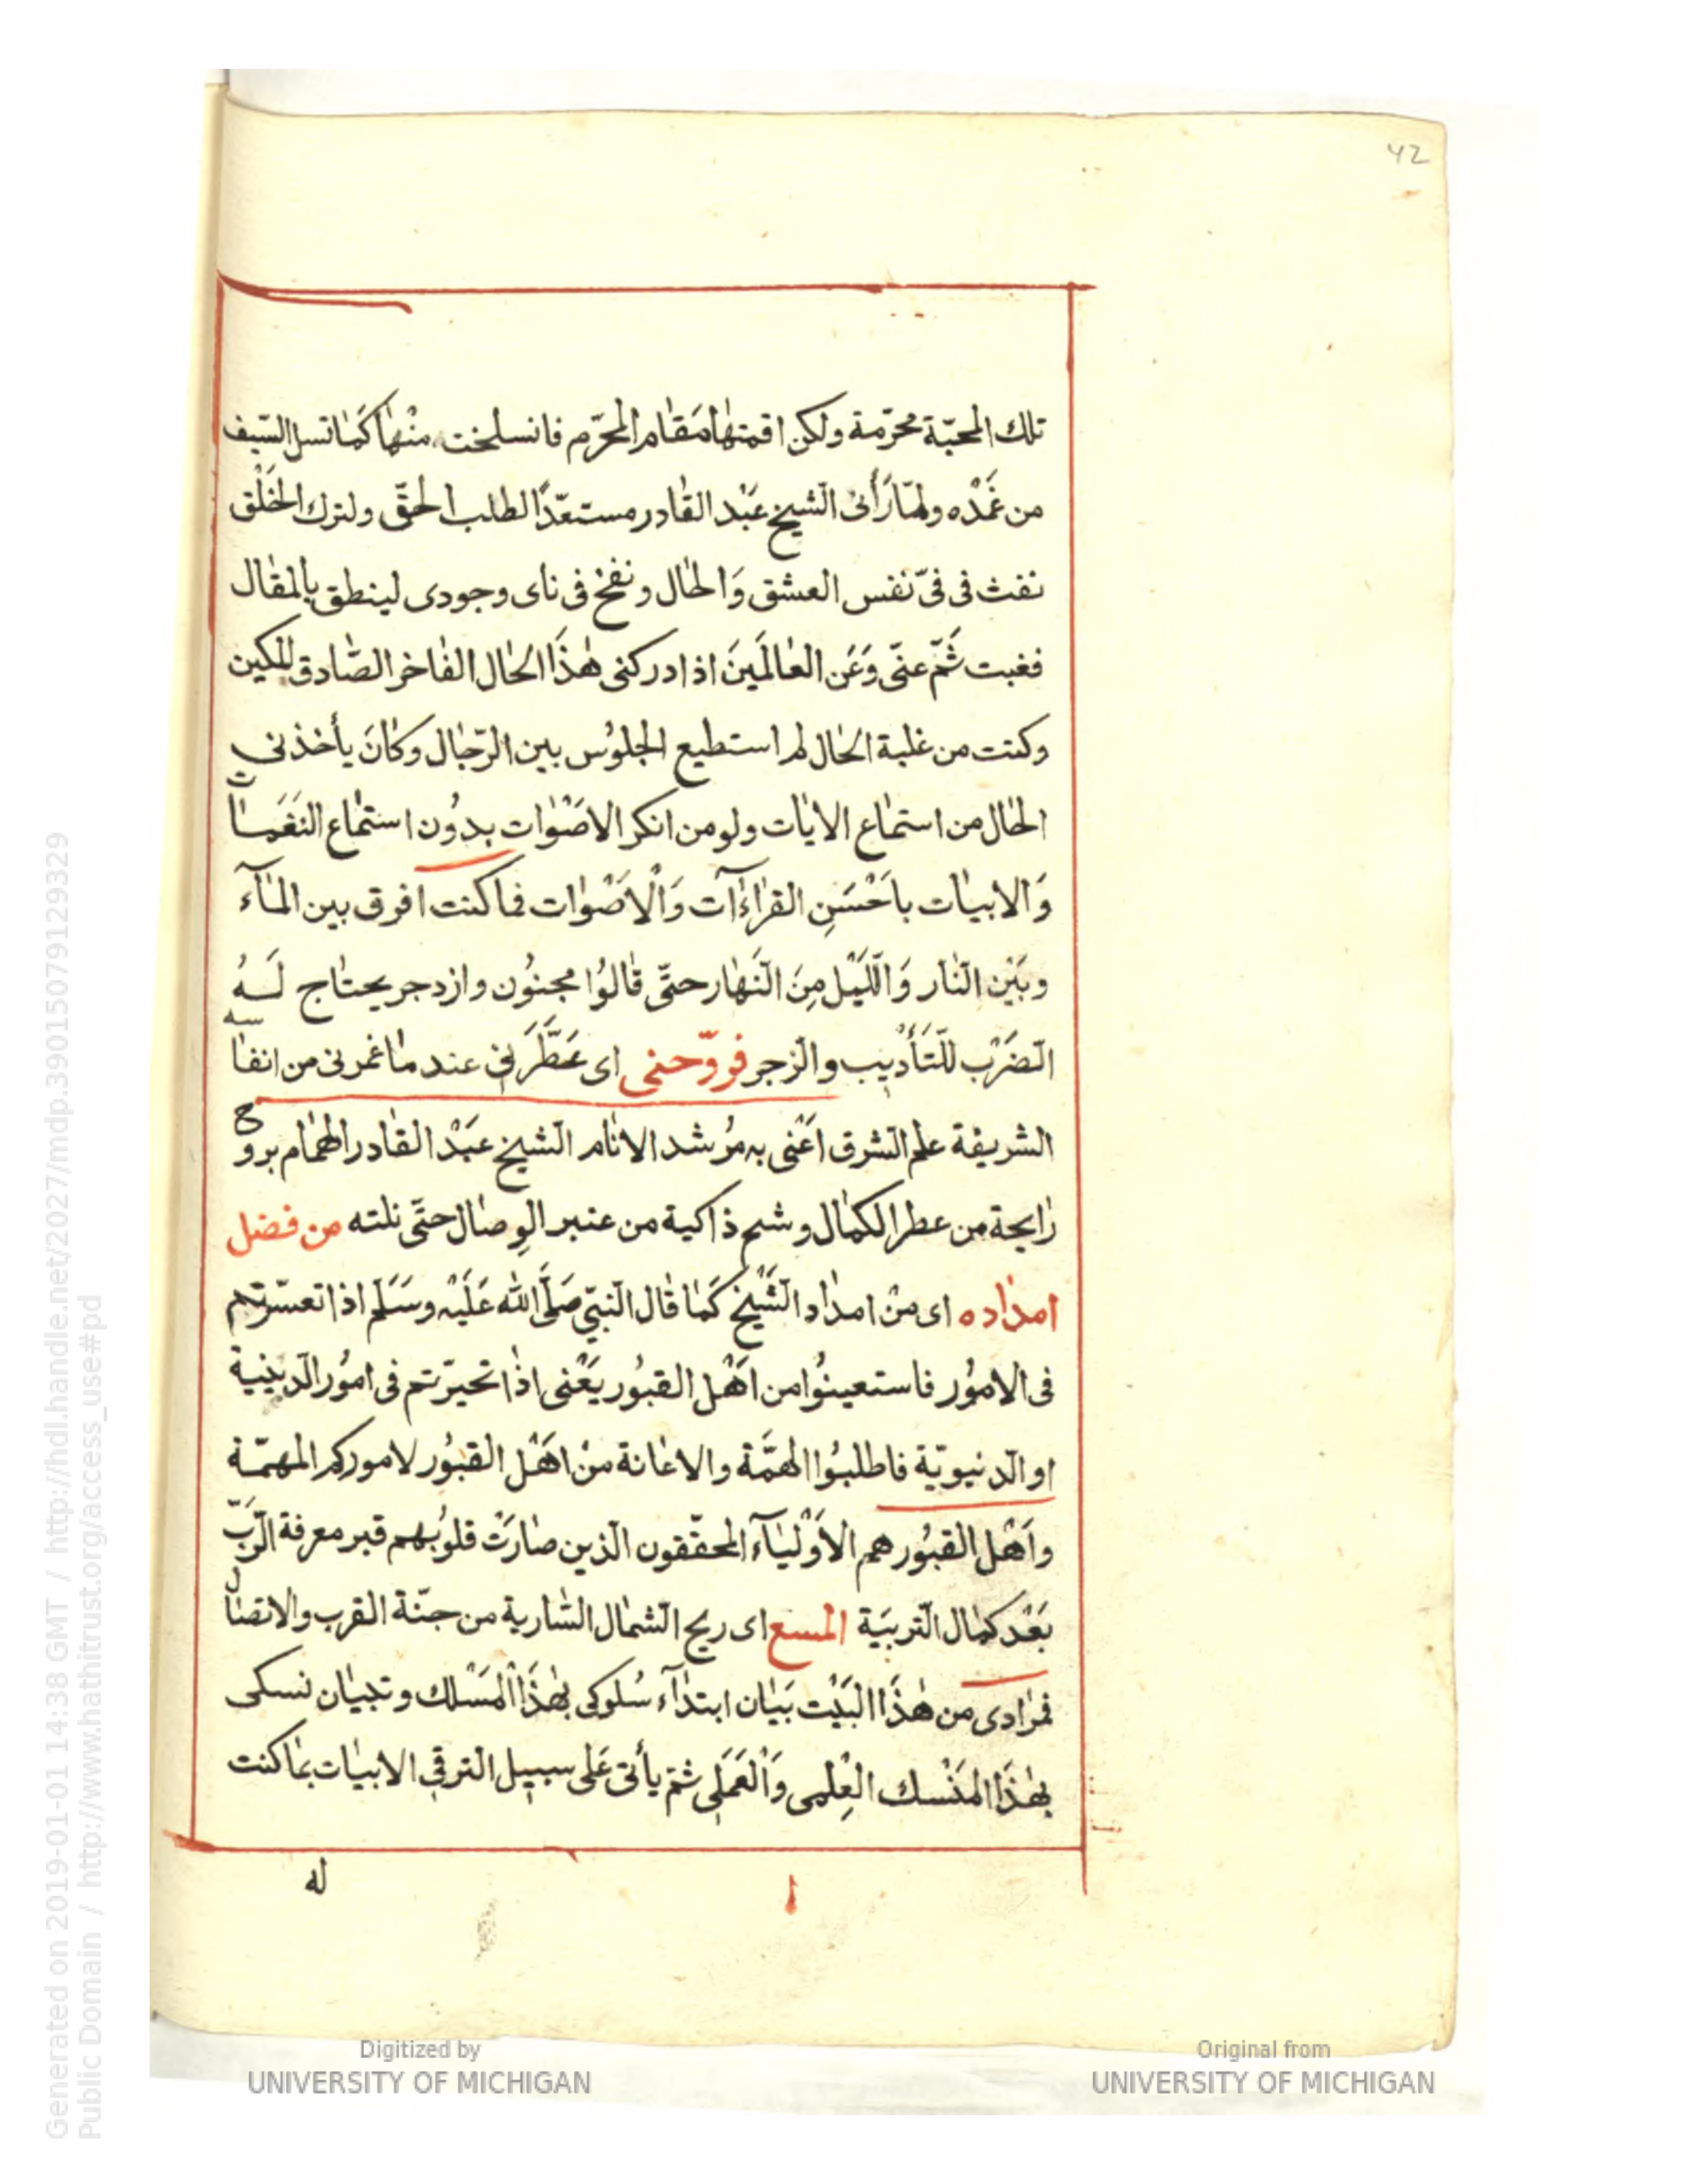 42
تلك المحبّة محرّمة ولكن اقمتها مَقام المحرّم فانسلخت منْها كَما تسل السّيف
من غَمْدْه ولمّا رَأىٰ الشيخ عَبْد القادر مستعدًّا لطلب الحقّ ولترك الخَلْق
نفث فى فىّ نفس العشق وَالحال ونفخ فى ناى وجودى لينطق بالمقال
فغبت ثَمّ عنّى وَعَن العالَمينَ اذ ادركنى هٰذَا الحال الفاخر الصّادق المكين
وكنت من غلبة الحال لم استطيع الجلوُس بين الرّجال وكانَ يأخذنى
الحال من استماع الايات ولو من انكر الاصْوات بدوُن استماع النغَمات
وَالابيات باَحْسَنِ القراءَآت وَالْاصْوات فما كنت افرق بين المآء
وبَيْن النّار وَاللّيْل مِنَ النّهار حتّى قالوُا مجنوُن وازدجر يحتاج لَهُ
الضَرْب للتَأديب والزجر فروّحنى اى عَطَّرَنى عند ما غمرنى من انفاسه
الشريفة علم الشرق اَعْنى به مُرشد الانام الشيخ عبَدْ القادر الهمام بروح
رايحة من عطر الكمال وشم ذاكية من عنبر الوِصال حتّى نلته من فضل
امداده اى منْ امداد الشَّيْخ كَما قال النبىّ صَلَّى الله عَلَيْه وسَلّم اذا تعسّرتم
فى الاموُر فاستعينوُا من اَهْل القبوُر يَعْنى اذا تحيّرتم فى اموُر الدّينية
او الدّنيويّة فاطلبوُا الهمَّة والاعانة منْ اهَل القبوُر لاموركم المهمّة
واَهْل القبوُر هم الاَوْليآء المحقّقون الّذين صارَتْ قلوُبهم قبر معرفة الرّبّ
بَعْد كمال التّربيَة المسع اى ريح الشمال السّارية من جنّة القرب والاتصال
فمرادى من هٰذَا البَيْت بَيان ابتدآء سُلوكى بهٰذَا المَسْلك وتبيان نسكى
بهٰذَا المَنْسك العِلْمى وَالْعَمَلى ثمّ يأتى عَلى سبيل الترقى الابيات بما كنت
له
Generated on 2019-01-01 14:38 GMT / http://hdl.handle.net/2027/mdp.39015079129329
Public Domain / http://www.hathitrust.org/access_use#pd
Digitized by
UNIVERSITY OF MICHIGAN
Original from
UNIVERSITY OF MICHIGAN